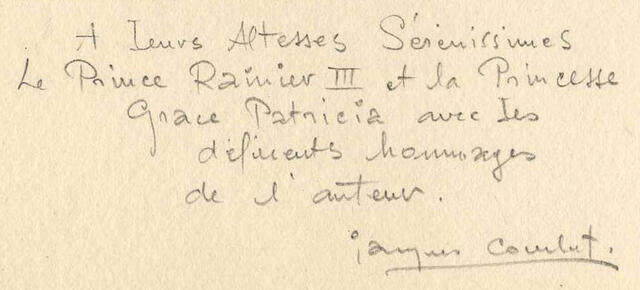 A Leurs Altesses Sérénissimes
Le Prince Rainier III et la Princesse
Grace Patricia avec les
déférents hommages
de l'auteur.
jacques